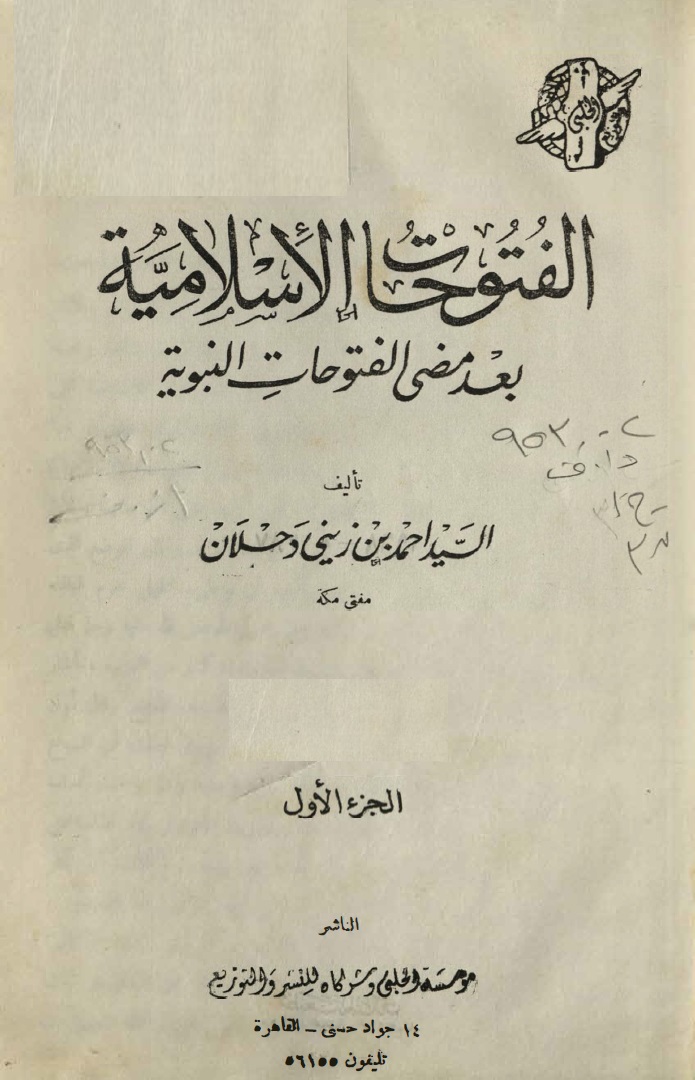 الحلبي
الفُتُوحَاتُ الإِسْلَامِيَّة
بعْد مضى الفتوحاتِ النبوية
٩٥٣,٠٢
د ا. ف
تأليف
السَّيِّد احمد بن زينى دَحْلَان
مفتى مكة
الجزء الأول
الناشر
مؤسسة الحلبى وشركاه للنشر والتوزيع
١٤ جواد حسنى ــ القاهرة
تليفون ٥٦١٥٥